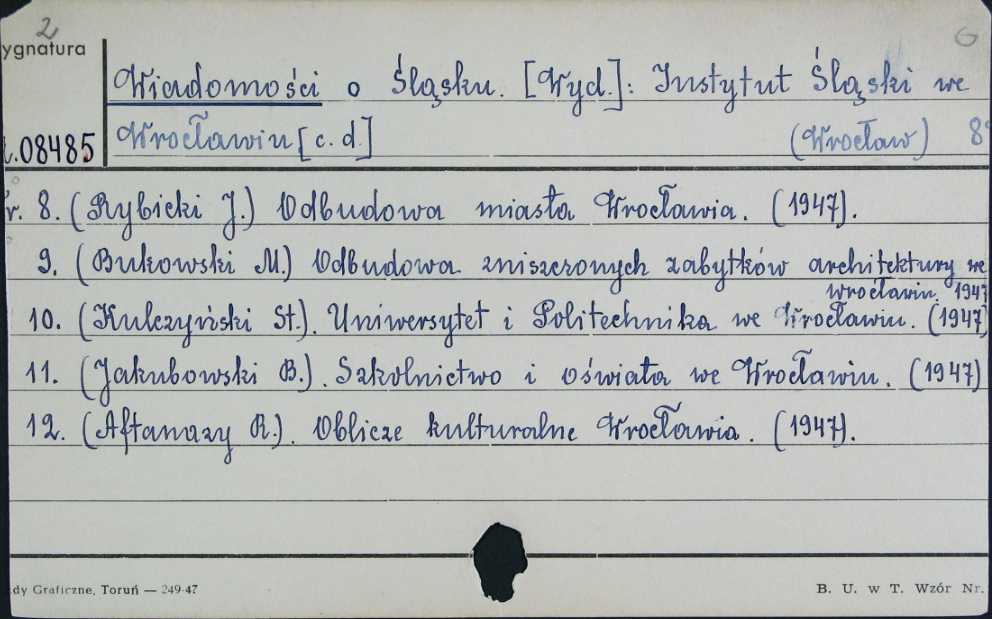 2 G
ygnatura
Wiadomości o Śląsku. [Wyd.]: Instytut Śląski we
.08485 Wrocławiu [c. d.] (Wrocław) 8°
r. 8. (Rybicki J.) Odbudowa miasta Wrocławia. (1947).
9. (Bukowski M.) Odbudowa zniszczonych zabytków architektury we
Wrocławiu. 1947
10. (Kulczyński St.). Uniwersytet i Politechnika we Wrocławiu. (1947)
11. (Jakubowski B.). Szkolnictwo i oświata we Wrocławiu. (1947)
12. (Aftanazy R.). Oblicze kulturalne Wrocławia. (1947).
dy Graficzne, Toruń — 249-47 B. U. w T. Wzór Nr.